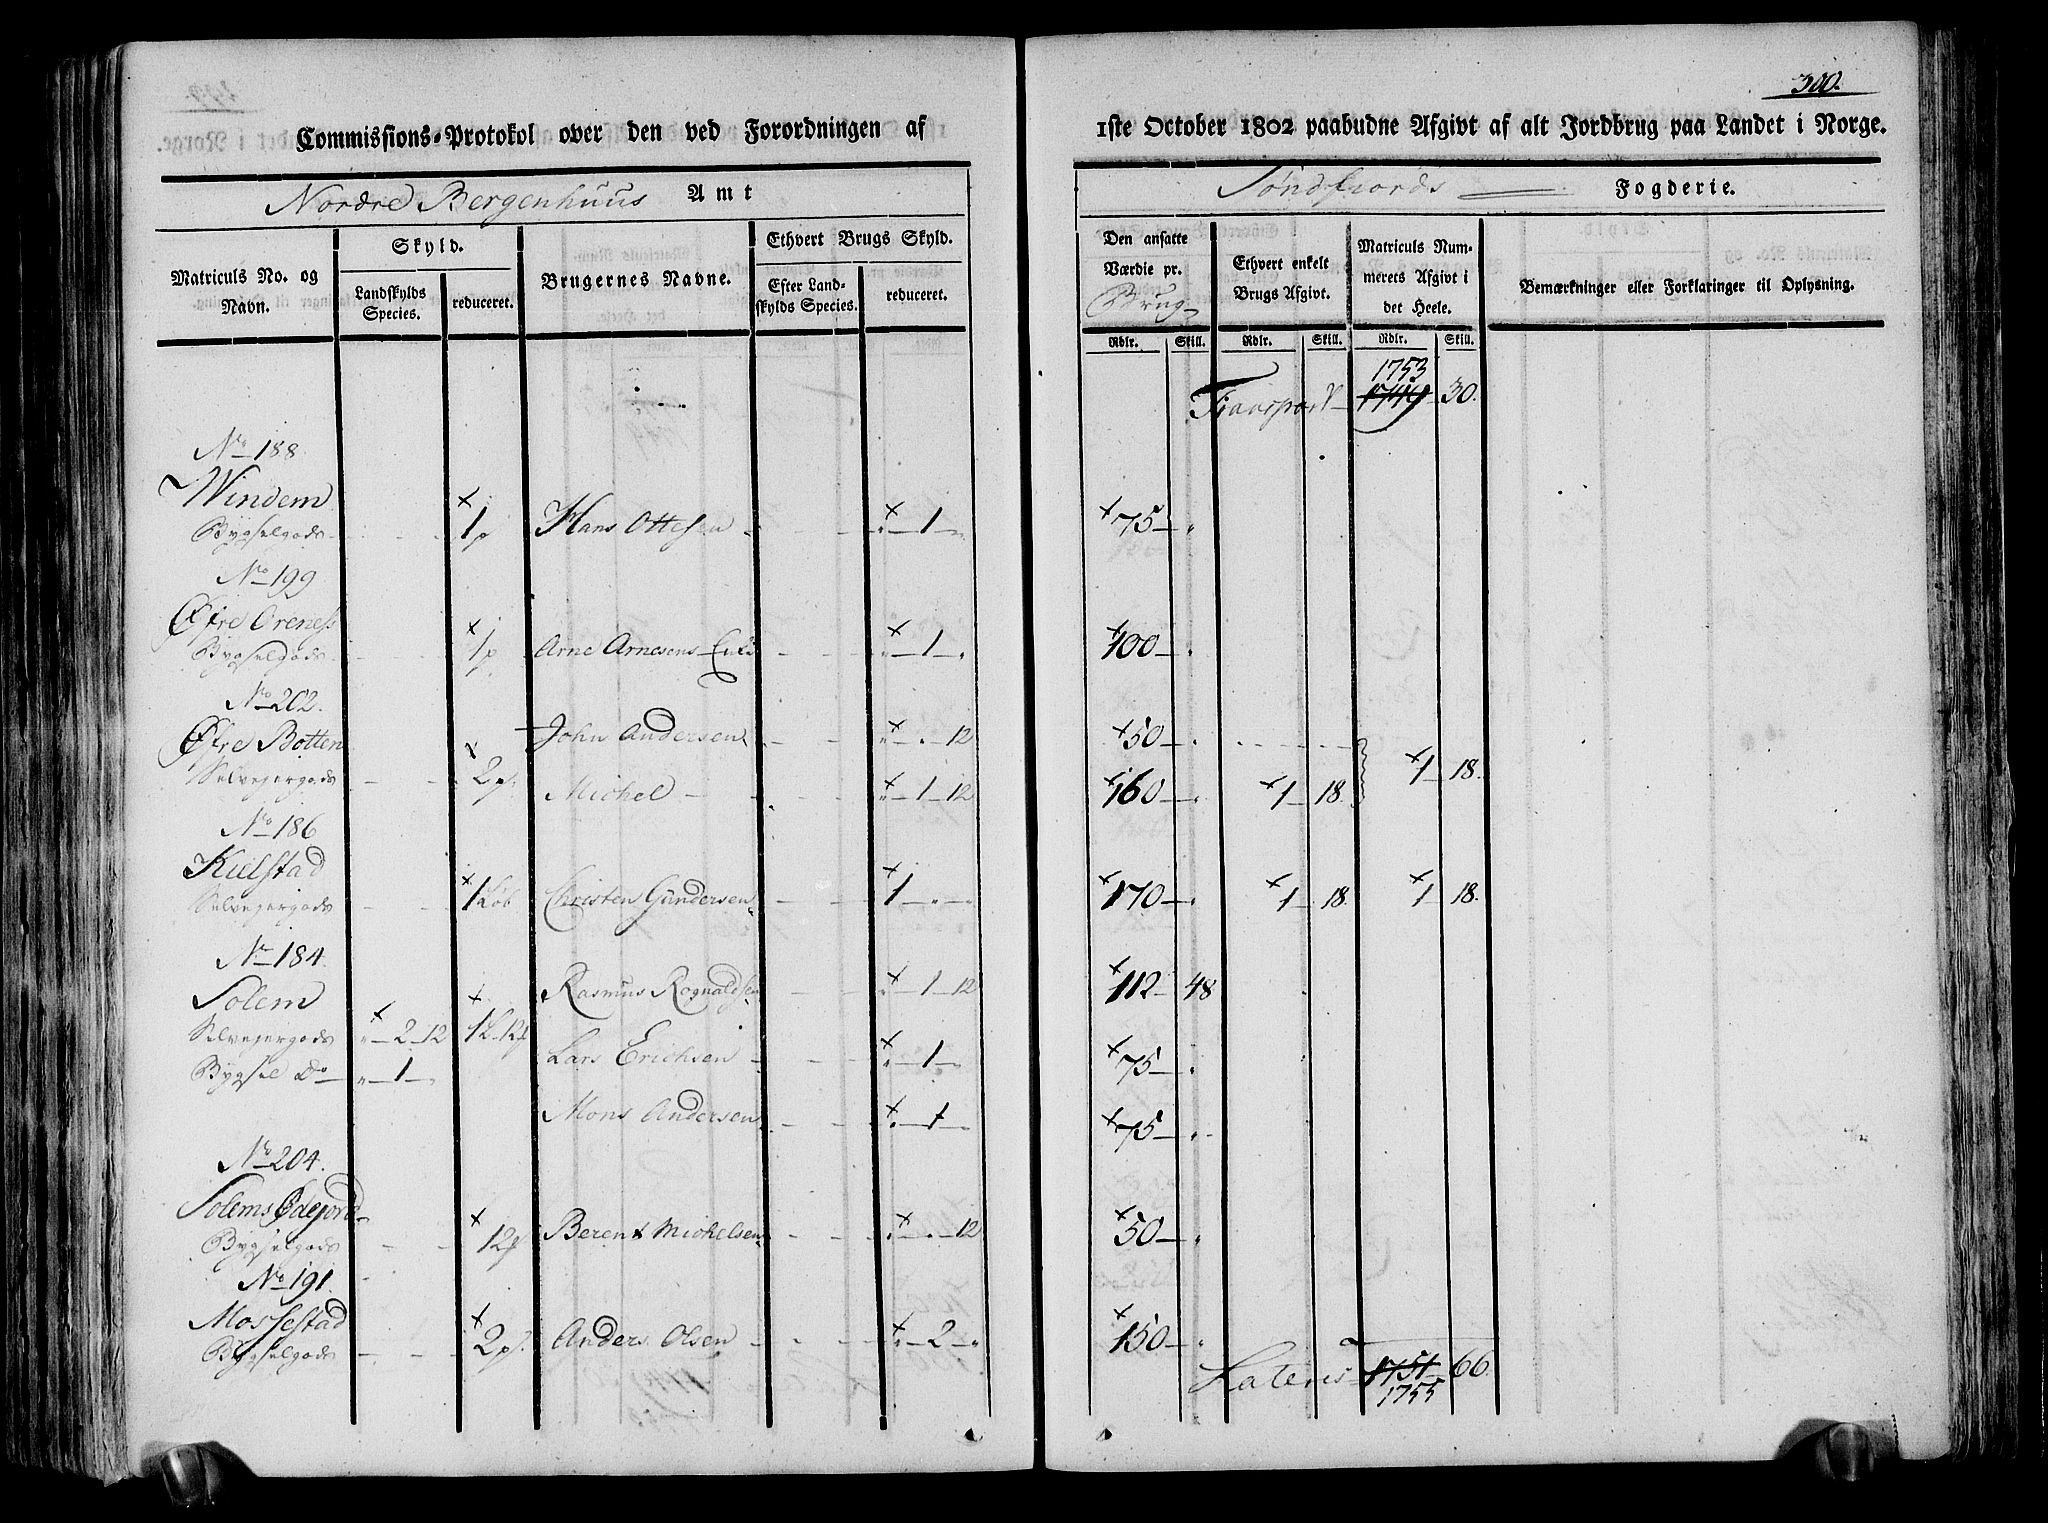 300.
Commissions-Protokol over den ved Forordningen af 1ste October 1802 paabudne Afgivt af alt Jordbrug paa Landet i Norge.
Nordre Bergenhuus Amt
Søndfiords Fogderie.
Matriculs No. og Navn.
Skyld.
Landskylds Species.
reduceret.
Brugernes Navne.
Ethvert Brugs Skyld.
Efter Landskylds Species.
reduceret.
Den ansatte Værdie pr. Brug
Ethvert enkelt Brugs Afgivt.
Matriculs Nummerets Afgivt i det Heele.
Bemærkninger eller Forklaringer til Oplysning.
Rdlr. Skill. Rdlr. Skill. Rdlr. Skill.
1753
Transport 1749 30.
No 188
Windem
Bygselgods 1p Hans Ottesen 1 75
No 199
Øfre Oreness
Bygselgods 1p Arne Arnesens Enke 1 100
No 202.
Øfre Botten John Andersen 12 50
Selvejergods 2p. Michel 1 12 160 1 18 1 18.
No 186
Kielstad
Selvejergods 1 Løb Christen Gundersen 1 170 1 18. 1 18.
No 184.
Solem Rasmus Rognaldsen 1 12 112 48
Selvejergods 2 12 1L 12 Lars Erichsen 1 75
Bygsel Do 1
Mons Andersen 1 75
No 204.
Solems Ødejord
Bygselgods 12 Berent Michelsen 12 50
No 191.
Mossestad
Bygselgods 2p. Anders Olsen 2 150
Lateris 1751 66.
1755